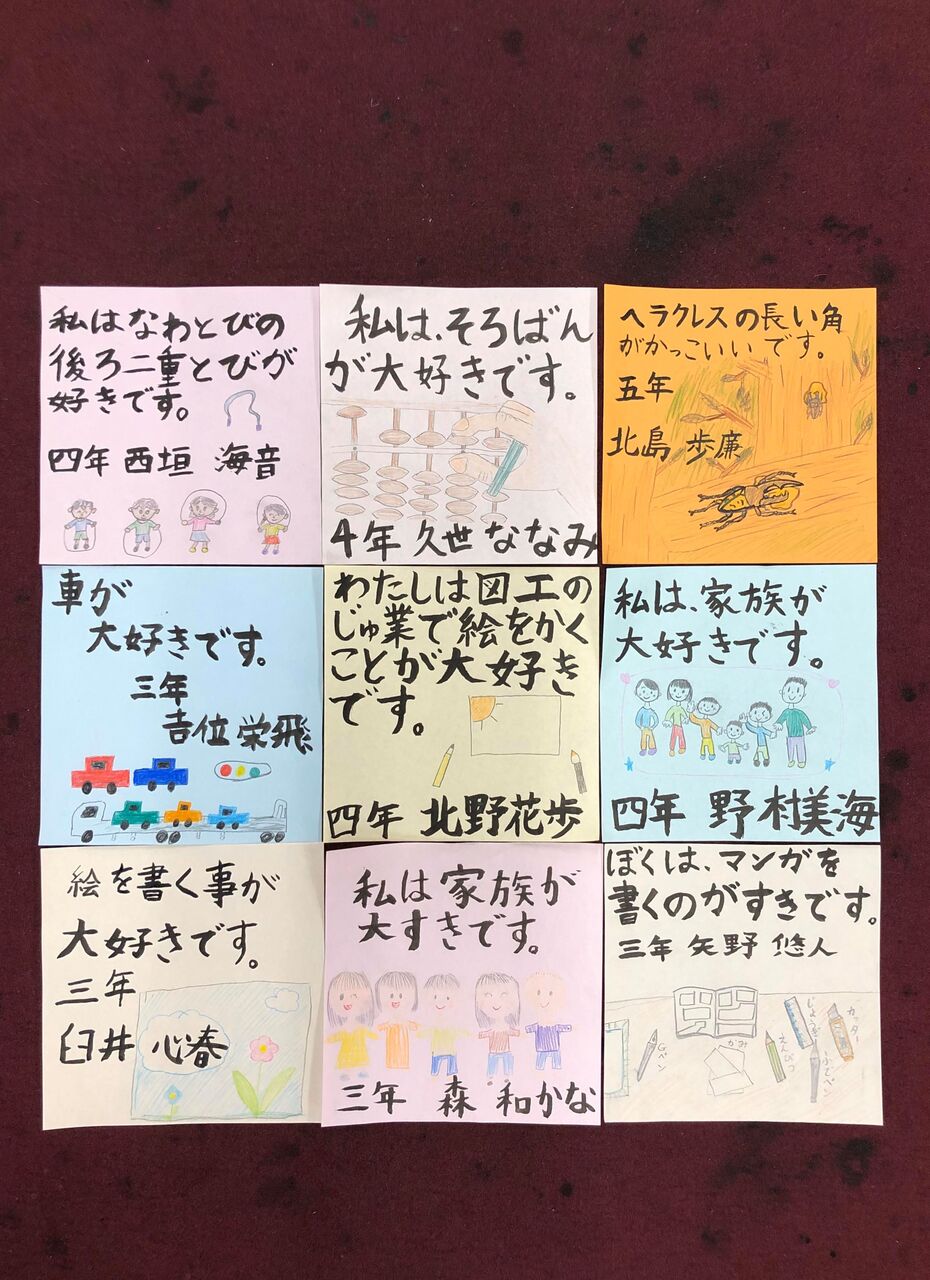 私はなわとびの
後ろ二重とびが
好きです。
四年 西垣 海音
私は、そろばん
が大好きです。
4年 久世ななみ
ヘラクレスの長い角
がかっこいいです。
五年
北島 歩廉
車が
大好きです。
三年
吉位栄飛
わたしは図工の
じゅ業で絵をかく
ことが大好き
です。
四年 北野花歩
私は、家族が
大好きです。
四年 野村美海
絵を書く事が
大好きです。
三年
臼井 心春
私は家族が
大すきです。
三年 森 和かな
ぼくは、マンガを
書くのがすきです。
三年 矢野 悠人
Gペン
かみ
えんぴつ
じょうぎ
ふでペン
カッター